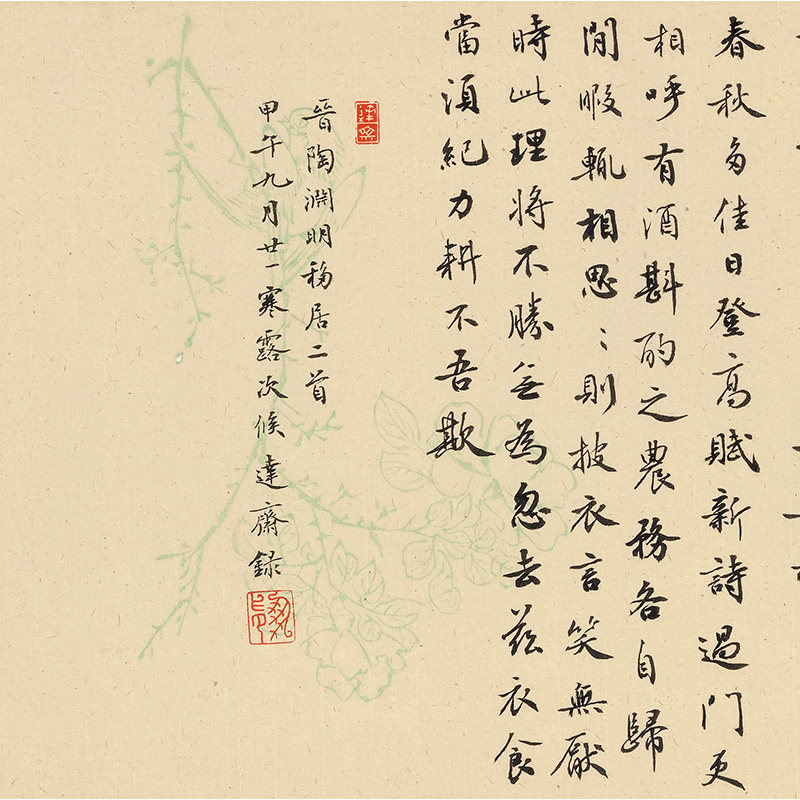 春秋多佳日登高賦新詩過門更
相呼有酒斟酌之農務各自歸
閒暇輒相思〻則披衣言笑無厭
時此理將不勝無為忽去茲衣食
當須紀力耕不吾欺
晉陶淵明移居二首
甲午九月廿一寒露次候達齋錄